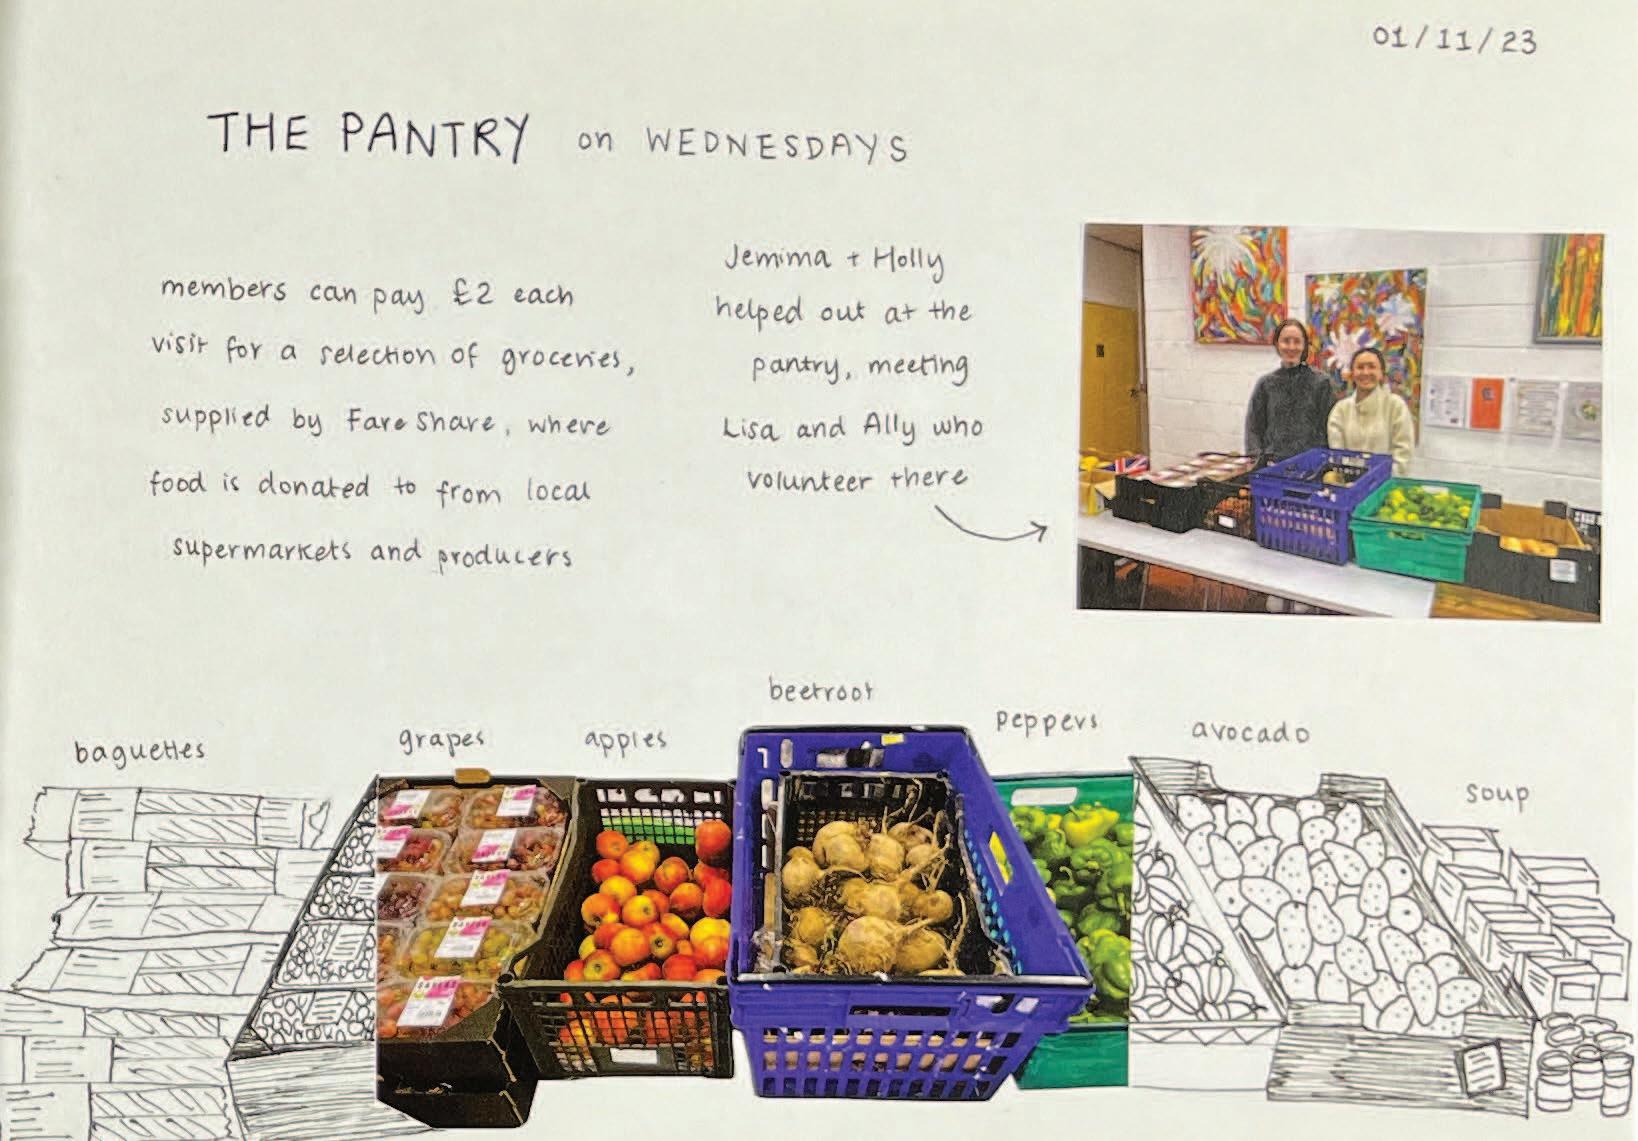 01/11/23
THE PANTRY on WEDNESDAYS
members can pay £2 each
visit for a selection of groceries,
supplied by Fare Share, where
food is donated to from local
supermarkets and producers
Jemima + Holly
helped out at the
pantry, meeting
Lisa and Ally who
volunteer there
baguettes
grapes
apples
beetroot
peppers
avocado
soup